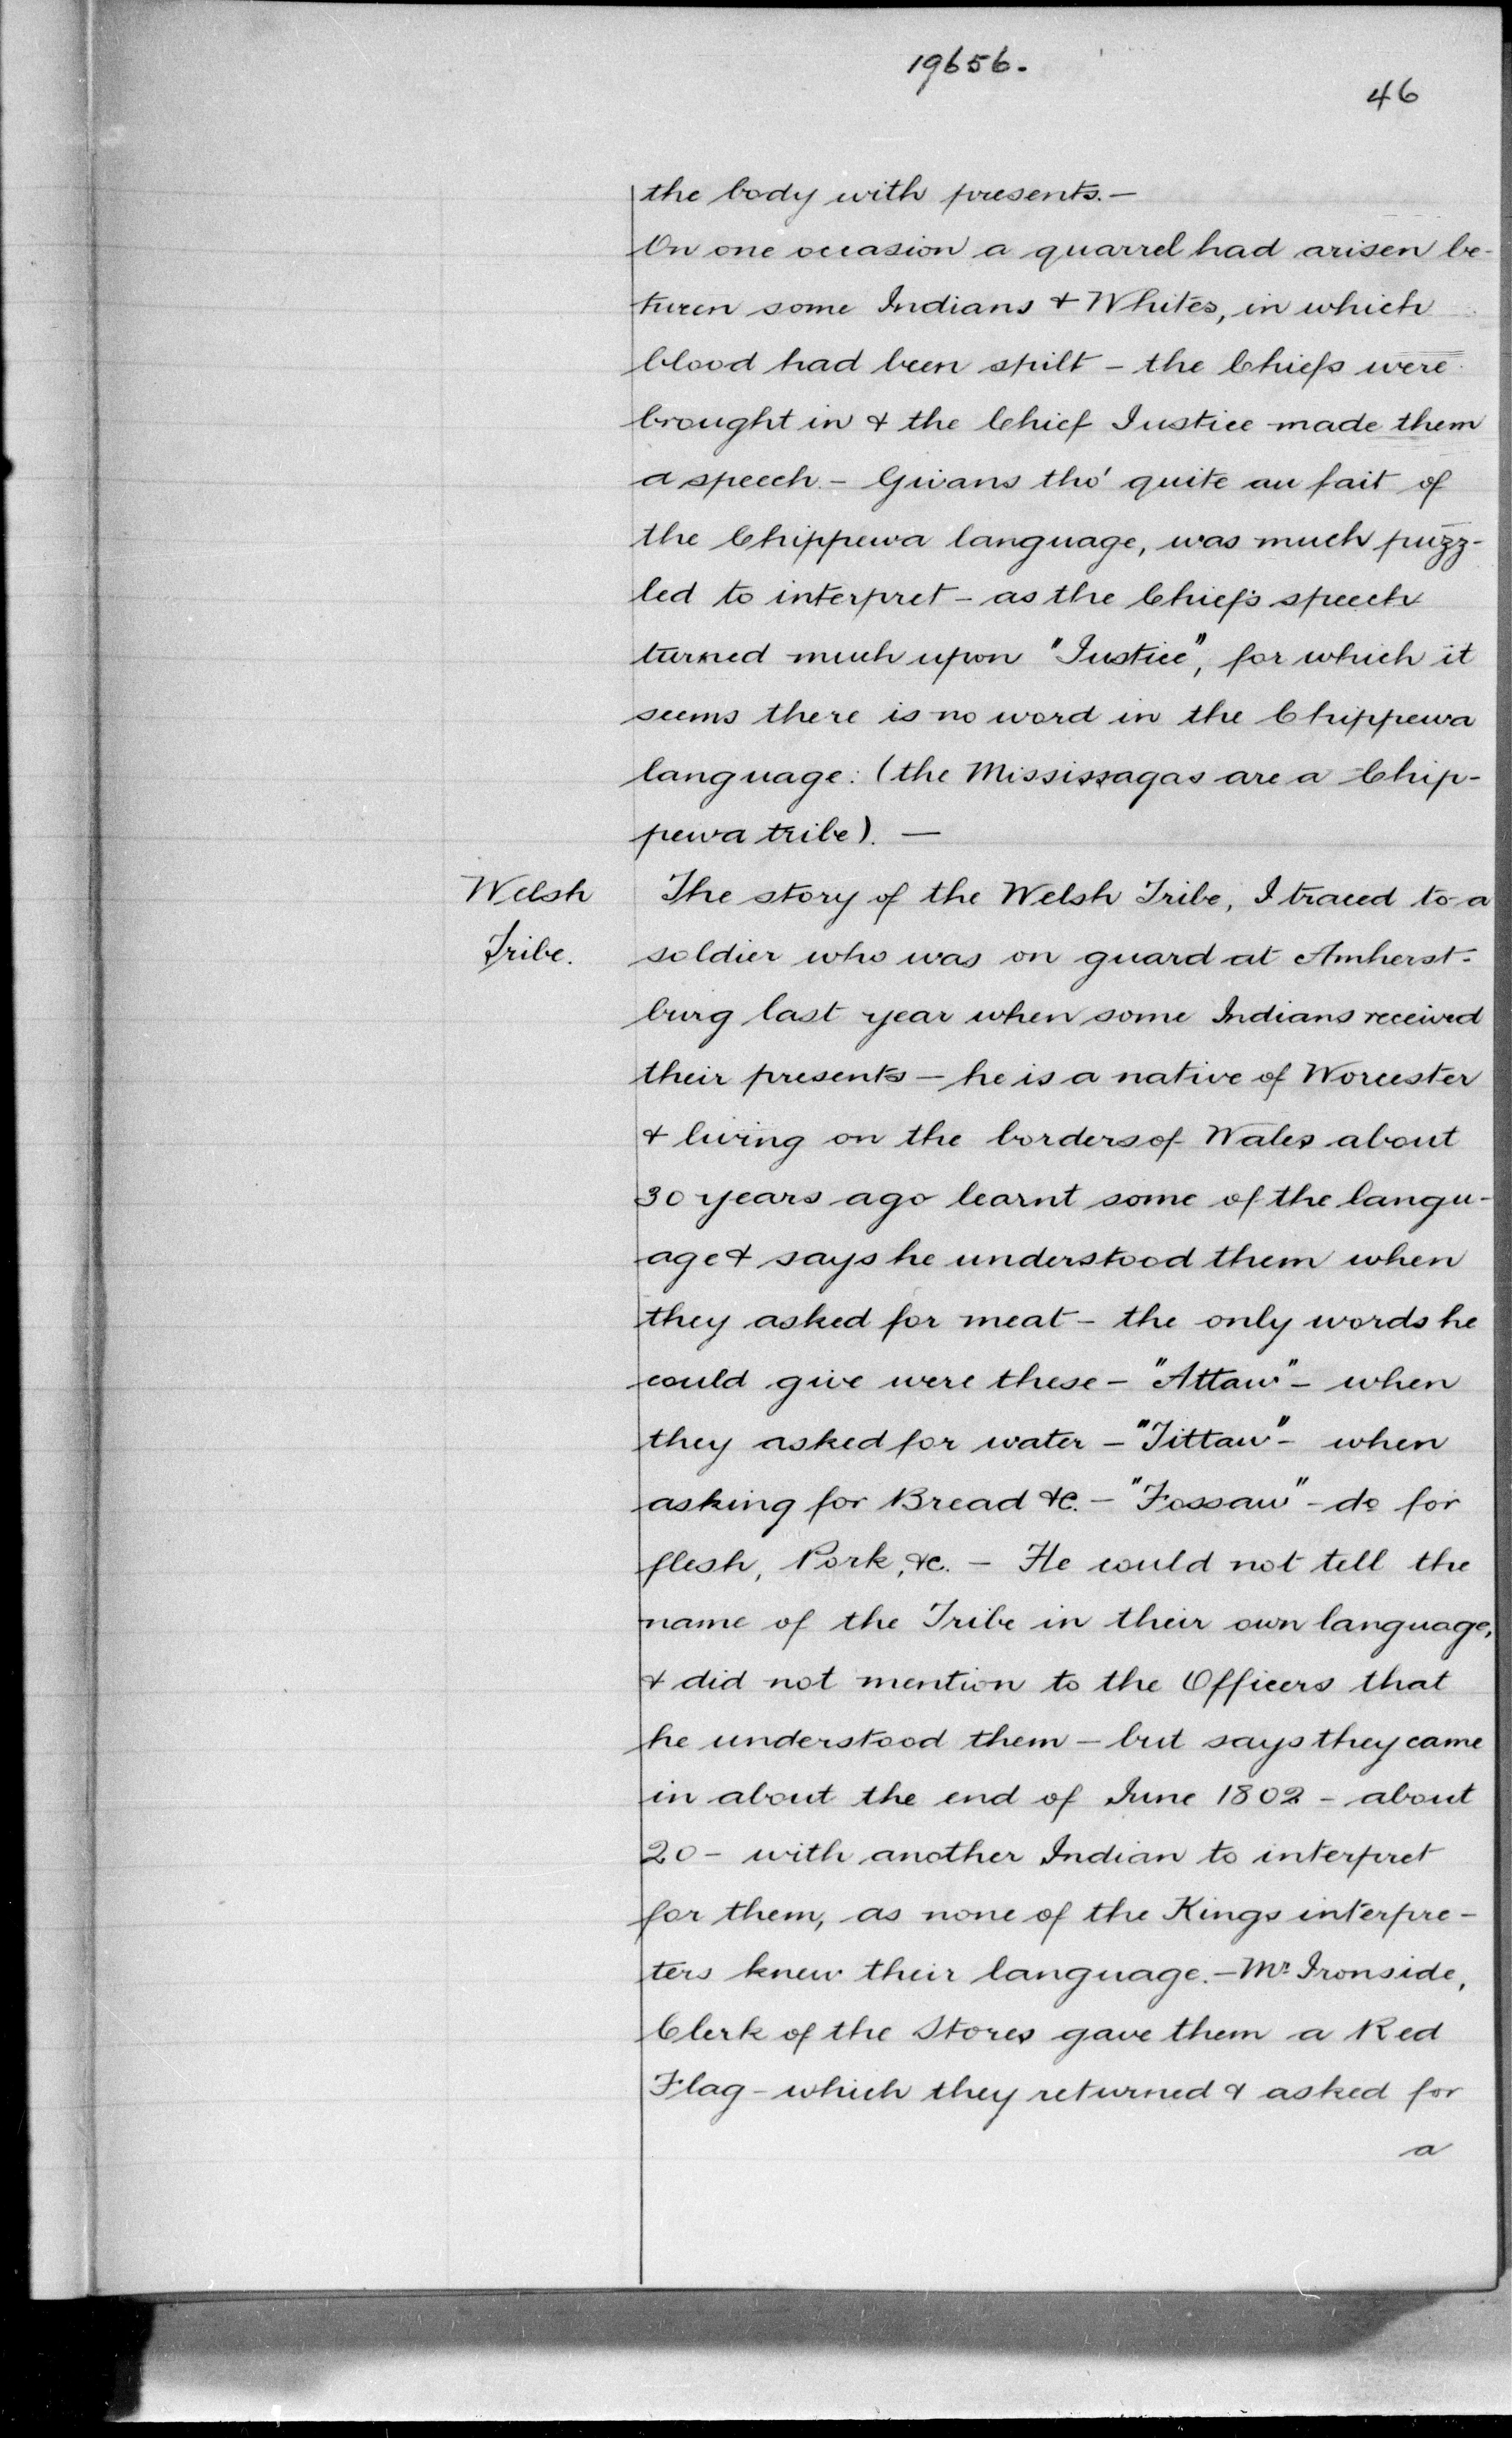 19656.
46
the body with presents.—
On one occasion a quarrel had arisen be-
tween some Indians & Whites, in which
blood had been spilt – the Chiefs were
brought in & the Chief Justice made them
a speech – Givans tho' quite au fait of
the Chippewa language, was much puzz-
led to interpret – as the Chief's speech
turned much upon "Justice", for which it
seems there is no word in the Chippewa
language: (the Mississagas are a Chip-
pewa tribe). —
Welsh Tribe.
The story of the Welsh Tribe, I traced to a
soldier who was on guard at Amherst-
burg last year when some Indians received
their presents – he is a native of Worcester
& living on the borders of Wales about
30 years ago learnt some of the langu-
age & says he understood them when
they asked for meat – the only words he
could give were these – "Attaw" – when
they asked for water – "Tittaw" – when
asking for Bread &c. – "Fossaw" – do for
flesh, Pork, &c. – He could not tell the
name of the Tribe in their own language,
& did not mention to the Officers that
he understood them – but says they came
in about the end of June 1802 – about
20 – with another Indian to interpret
for them, as none of the Kings interpre-
ters knew their language. – Mr Ironside,
Clerk of the Stores gave them a Red
Flag – which they returned & asked for
a